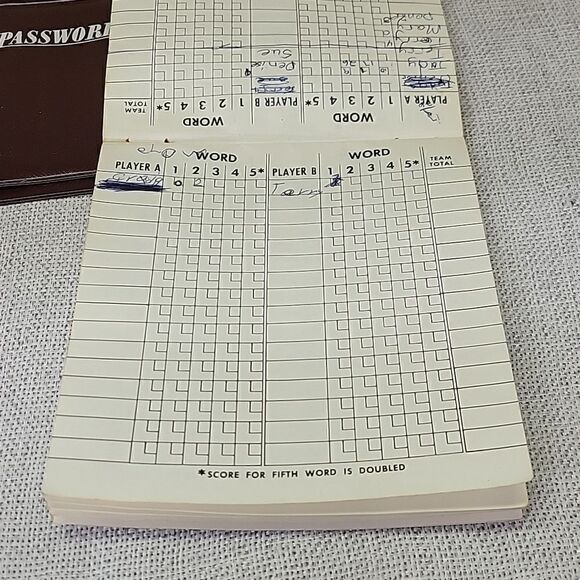 PASSWORD
TEAM TOTAL 5* 4 3 2 1 PLAYER B 5* 4 3 2 1 PLAYER A
WORD WORD
Denise
Sue
Judy
Terry
Mary
WORD WORD
PLAYER A 1 2 3 4 5* PLAYER B 1 2 3 4 5* TEAM TOTAL
Terry
*SCORE FOR FIFTH WORD IS DOUBLED